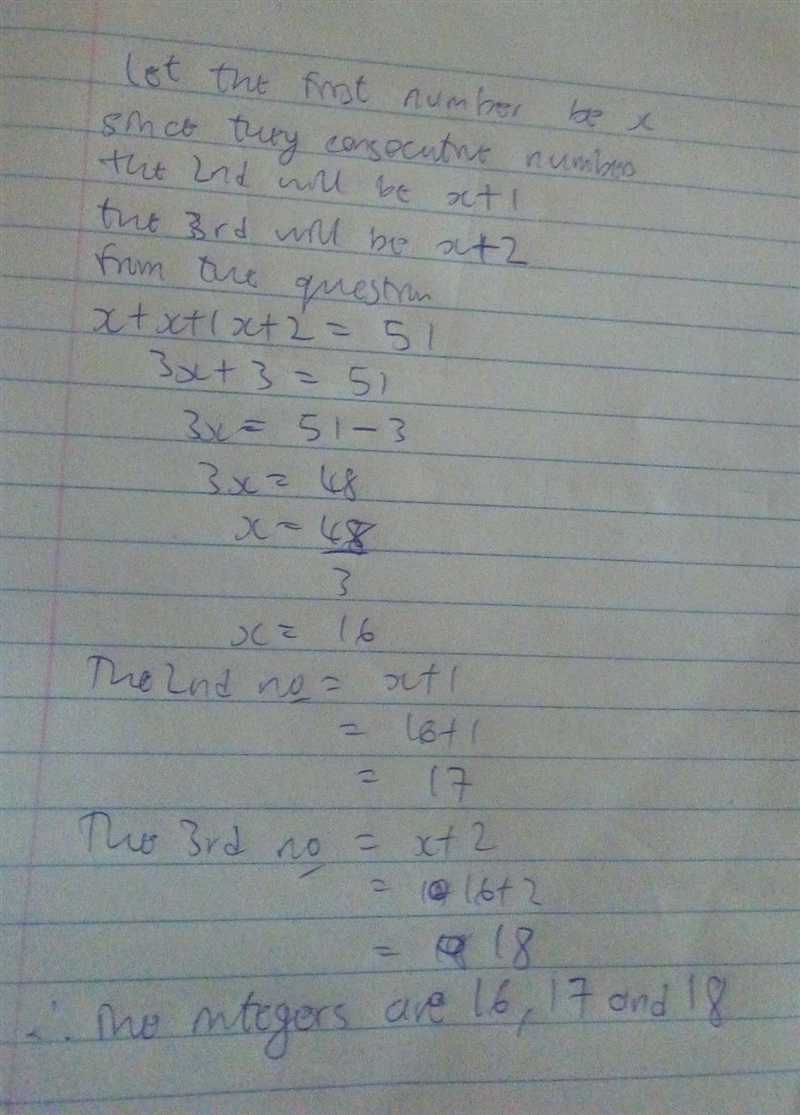 Let the first number be x
since they consecutive number
the 2nd will be x+1
the 3rd will be x+2
from the question
x+x+1x+2 = 51
3x+3 = 51
3x = 51-3
3x = 48
x = 48
3
x = 16
The 2nd no = x+1
= 16+1
= 17
The 3rd no = x+2
= 16+2
= 18
∴ The integers are 16, 17 and 18